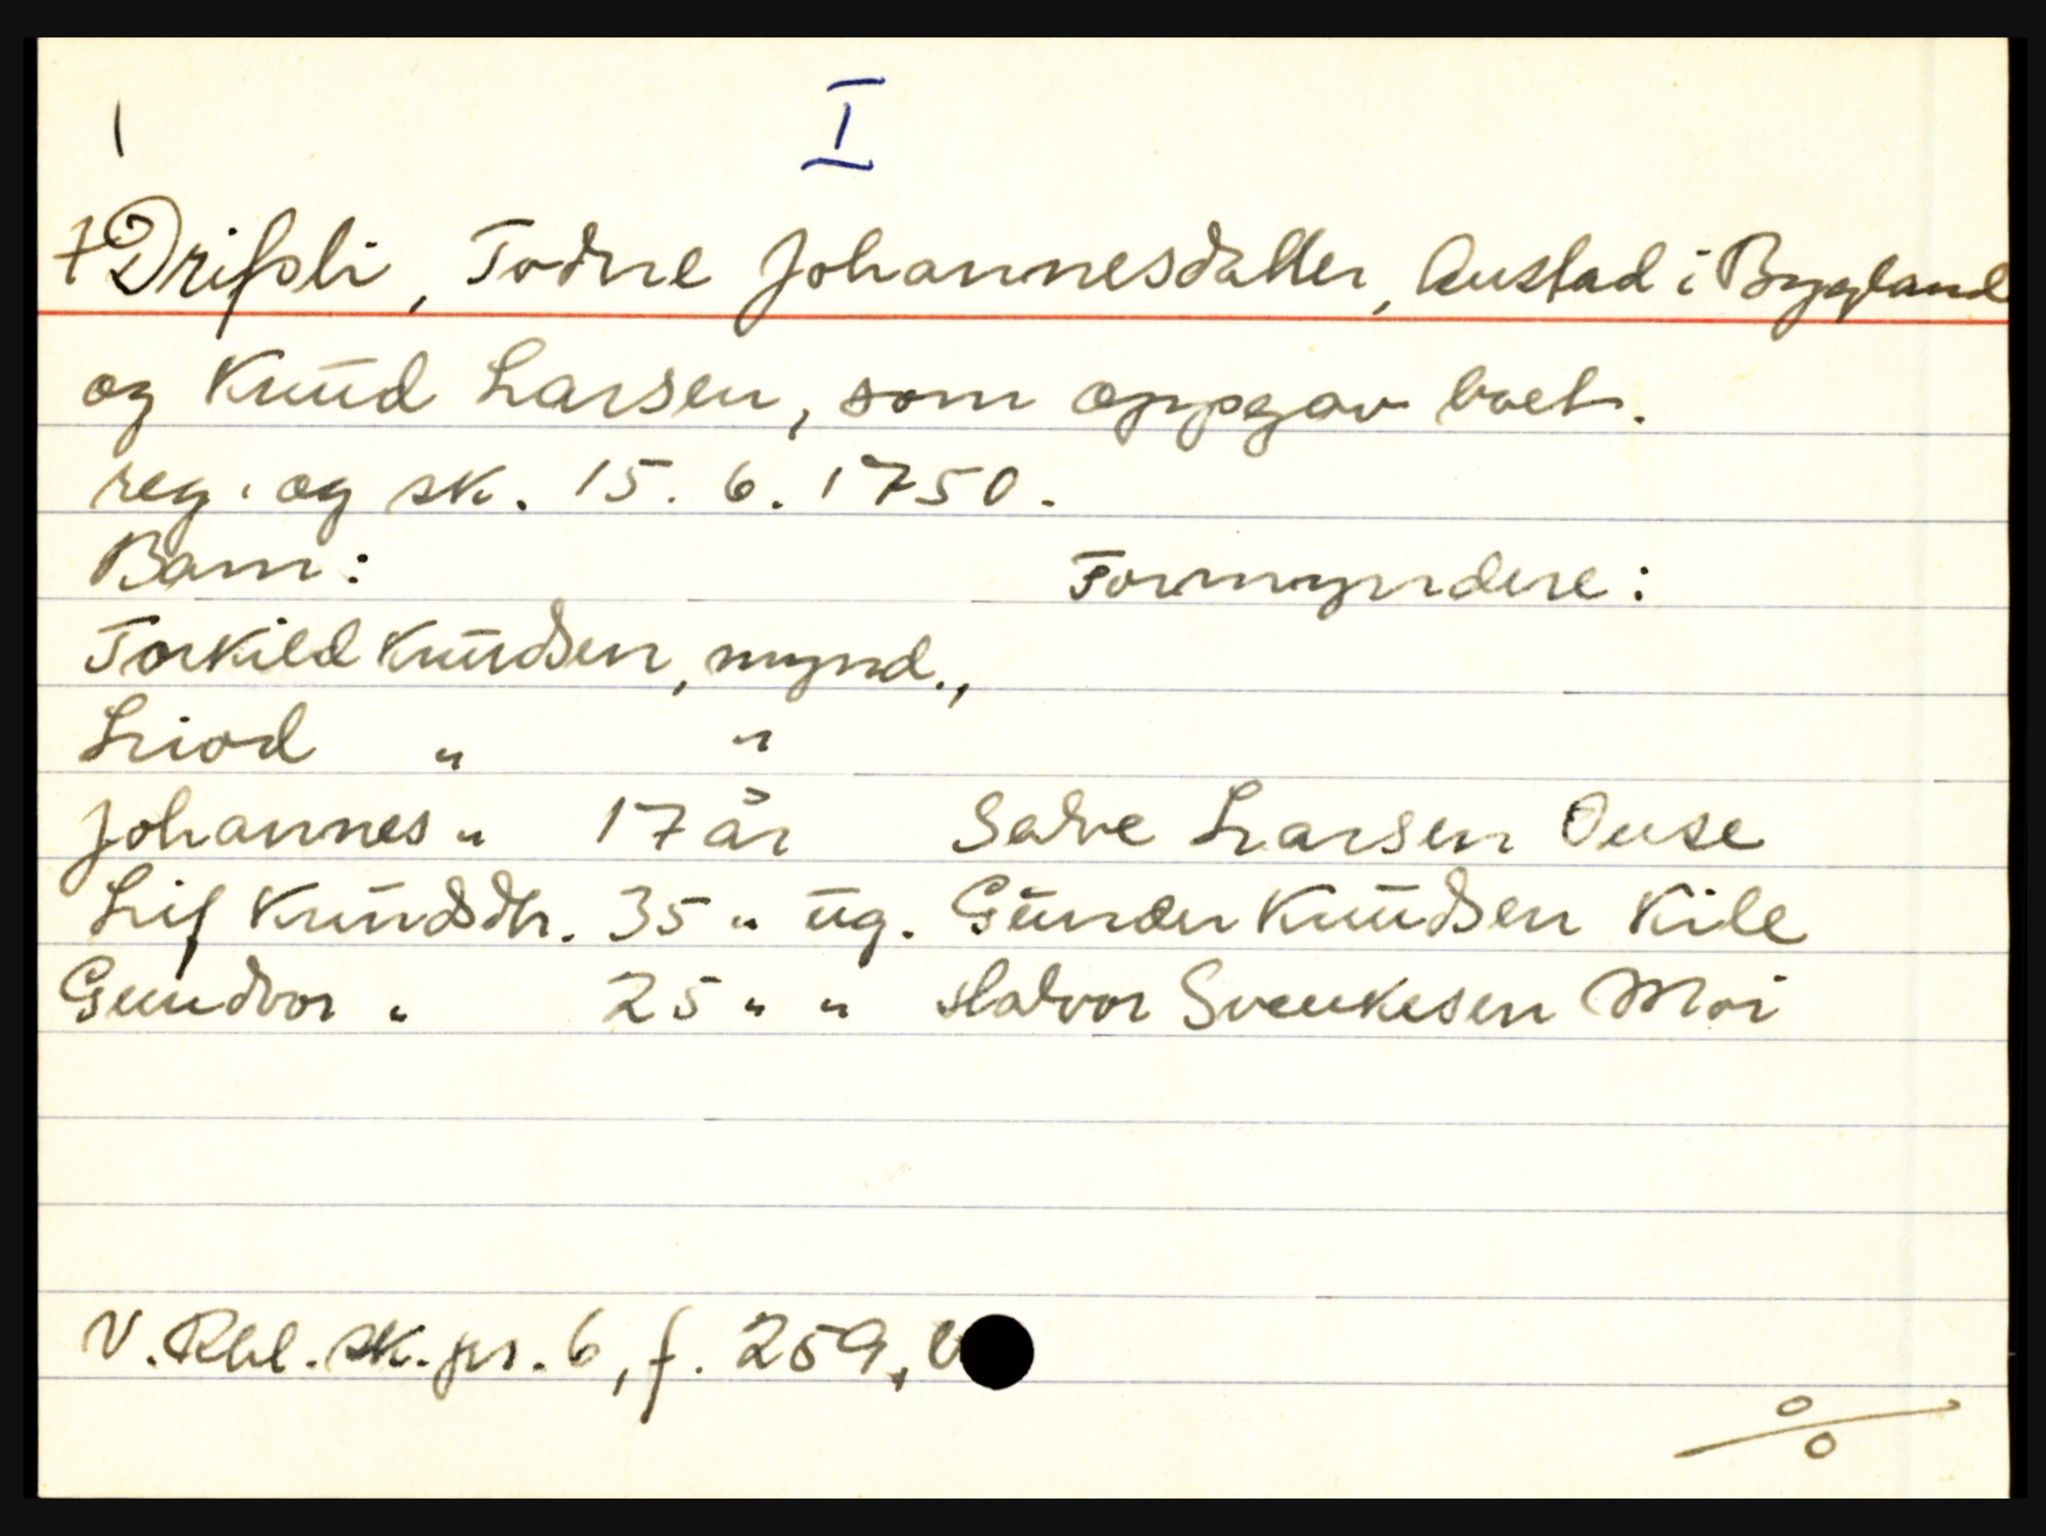 I
+ Drifsli, Todne Johannesdatter, Austad i Bygland
og Knud Larsen, som oppgav boet.
reg. og sk. 15. 6. 1750.
Barn: Formyndere:
Torkild Knudsen, mynd.,
Liod " "
Johannes " 17 år Salve Larsen Ouse
Lif Knudsdtr. 35 " ug. Gunder Knudsen Kile
Gundvor " 25 " " Halvor Svenkesen Moi
V. Rbl. sk. pr. 6, f. 259,
%